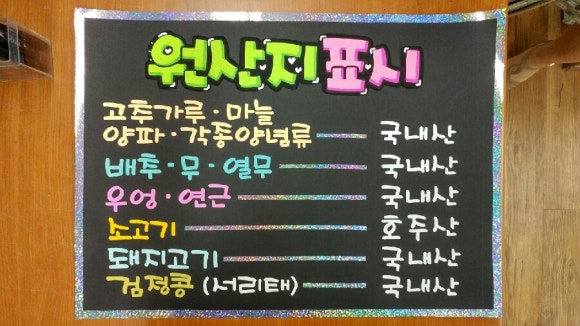 원산지표시
고추가루·마늘
양파·각종양념류 국내산
배추·무·열무 국내산
우엉·연근 국내산
소고기 호주산
돼지고기 국내산
검정콩(서리태) 국내산